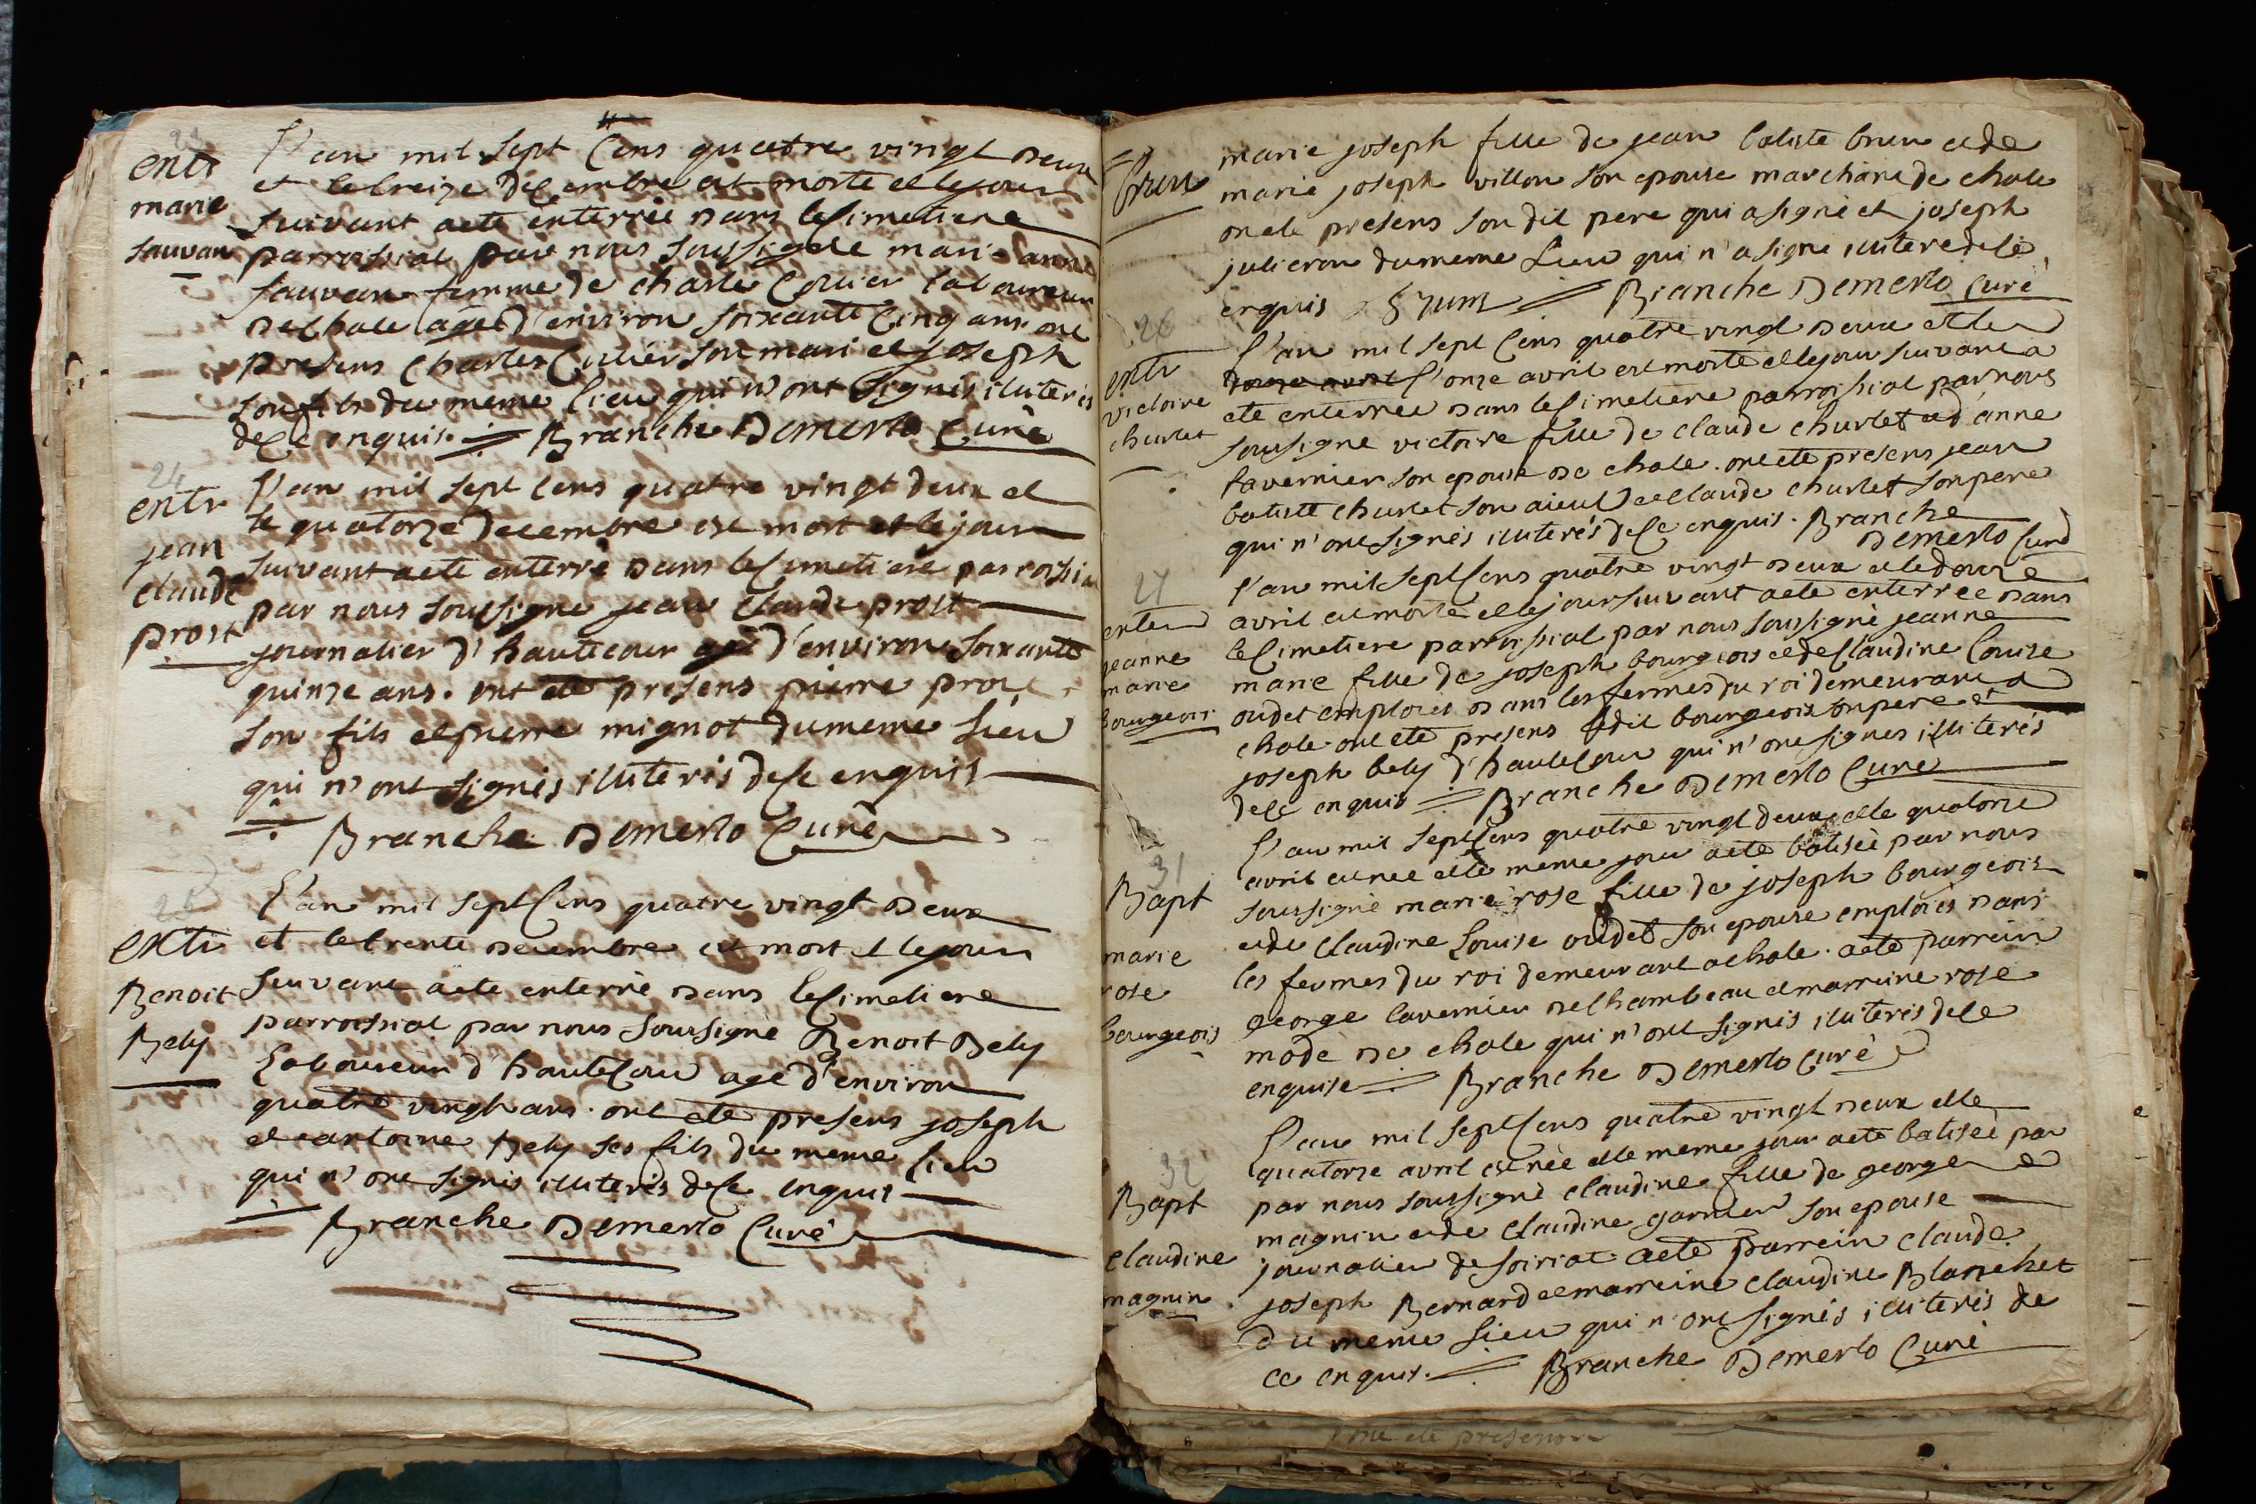 23
entr
marie
sauvan
L'an mil sept Cens quatre vingt deux
et le treize decembre est morte et le jour
suivant a eté enterrée dans le Cimetiere
parroissial par nous soussigné marie anne
sauvan femme de charle Cottier laboureur
de chale agée d'environ soixante Cinq ans ont
presens charles Cuttier son mari et joseph
son fils du meme lieu qui n'ont signés illiterés
de Ce enquis. Branche Demerlo Curé
24
entr
jean
claude
prost
L'an mil sept cens quatre vingt deux et
le quatorze decembre est mort et le jour
suivant a eté enterré dans le Cimetiere parroissial
par nous soussigné jean claude prost
journalier d'hautecour agé d'environ soixante
quinze ans. ont eté presens pierre prost
son fils et pierre mignot du meme lieu
qui n'ont signés illiterés de Ce enquis
Branche Demerlo Curé
25
entr
Benoit
Bely
L'an mil sept Cens quatre vingt deux
et le trente decembre est mort et le jour
suivant a eté enterré dans le Cimetiere
parroissial par nous soussigné Benoit Bely
Laboureur d'hauteCour agé d'environ
quatre vingt ans. ont eté presens joseph
et antoine Bely ses fils du meme lieu
qui n'ont signés illiterés de Ce enquis
Branche Demerlo Curé
Brun
marie joseph fille de jean batiste brun et de
marie joseph villon son epouse marchand de chale
ont eté presens son dit pere qui a signé et joseph
julieron du meme Lieu qui n'a signé illiteré de Ce
enquis Brun Branche Demerlo Curé
26
entr
victoire
churlet
L'an mil sept Cens quatre vingt deux et le
douze avril l'onze avril est morte et le jour suivant a
eté enterrée dans le Cimetiere parroissial par nous
soussigné victoire fille de claude churlet et d'anne
tavernier son epouse de chale. ont eté presens jean
batiste churlet son aieul et Claude churlet son pere
qui n'ont signés illiterés de Ce enquis. Branche
Demerlo Curé
27
enter
jeanne
marie
bourgeois
l'an mil sept Cens quatre vingt deux et le douze
avril est morte et le jour suivant a eté enterrée dans
le Cimetiere parroissial par nous soussigné jeanne
marie fille de joseph bourgeois et de Claudine Louise
oudet emploiés dans les fermes du roi demeurant a
chale. ont eté presens ledit bourgeois son pere et
joseph bely d'hauteCour qui n'ont signés illiterés
de Ce enquis Branche Demerlo Curé
31
Bapt
marie
rose
bourgeois
L'an mil sept Cens quatre vingt deux et le quatorze
avril est née et le meme jour a eté batisée par nous
soussigné marie rose fille de joseph bourgeois
et de Claudine Louise oudet son epouse emploiés dans
les fermes du roi demeurant a chale. a eté parrein
george tavernier de Chambeau et marreine rose
mode de chale qui n'ont signés illiterés de Ce
enquise Branche Demerlo Curé
32
Bapt
claudine
magnin
L'an mil sept Cens quatre vingt deux et le
quatorze avril est née et le meme jour a eté batisée par
par nous soussigné claudine fille de george
magnin et de Claudine garnier son epouse
journalier de soiriat. a eté parrein claude
joseph Bernard et marreine claudine Blanchet
du meme Lieu qui n'ont signés illiterés de
Ce enquis. Branche Demerlo Curé